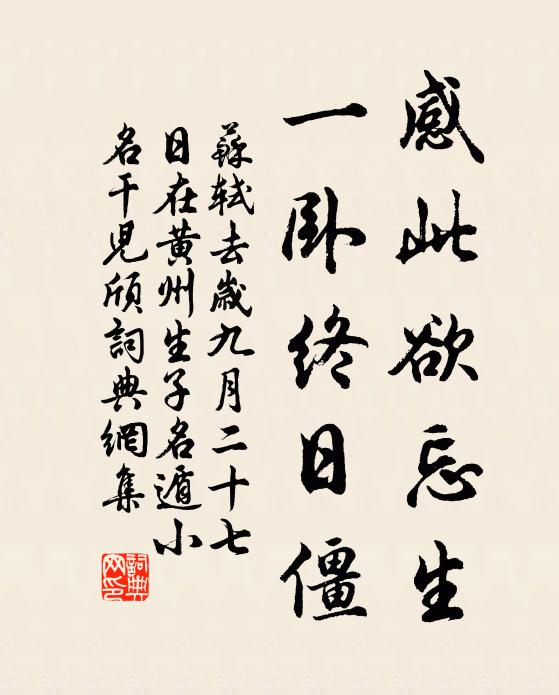 感此欲忘生
一卧終日僵
蘇軾去歲九月二十七
日在黃州生子名遁小
名干児頎詞典網集
詞典
网印